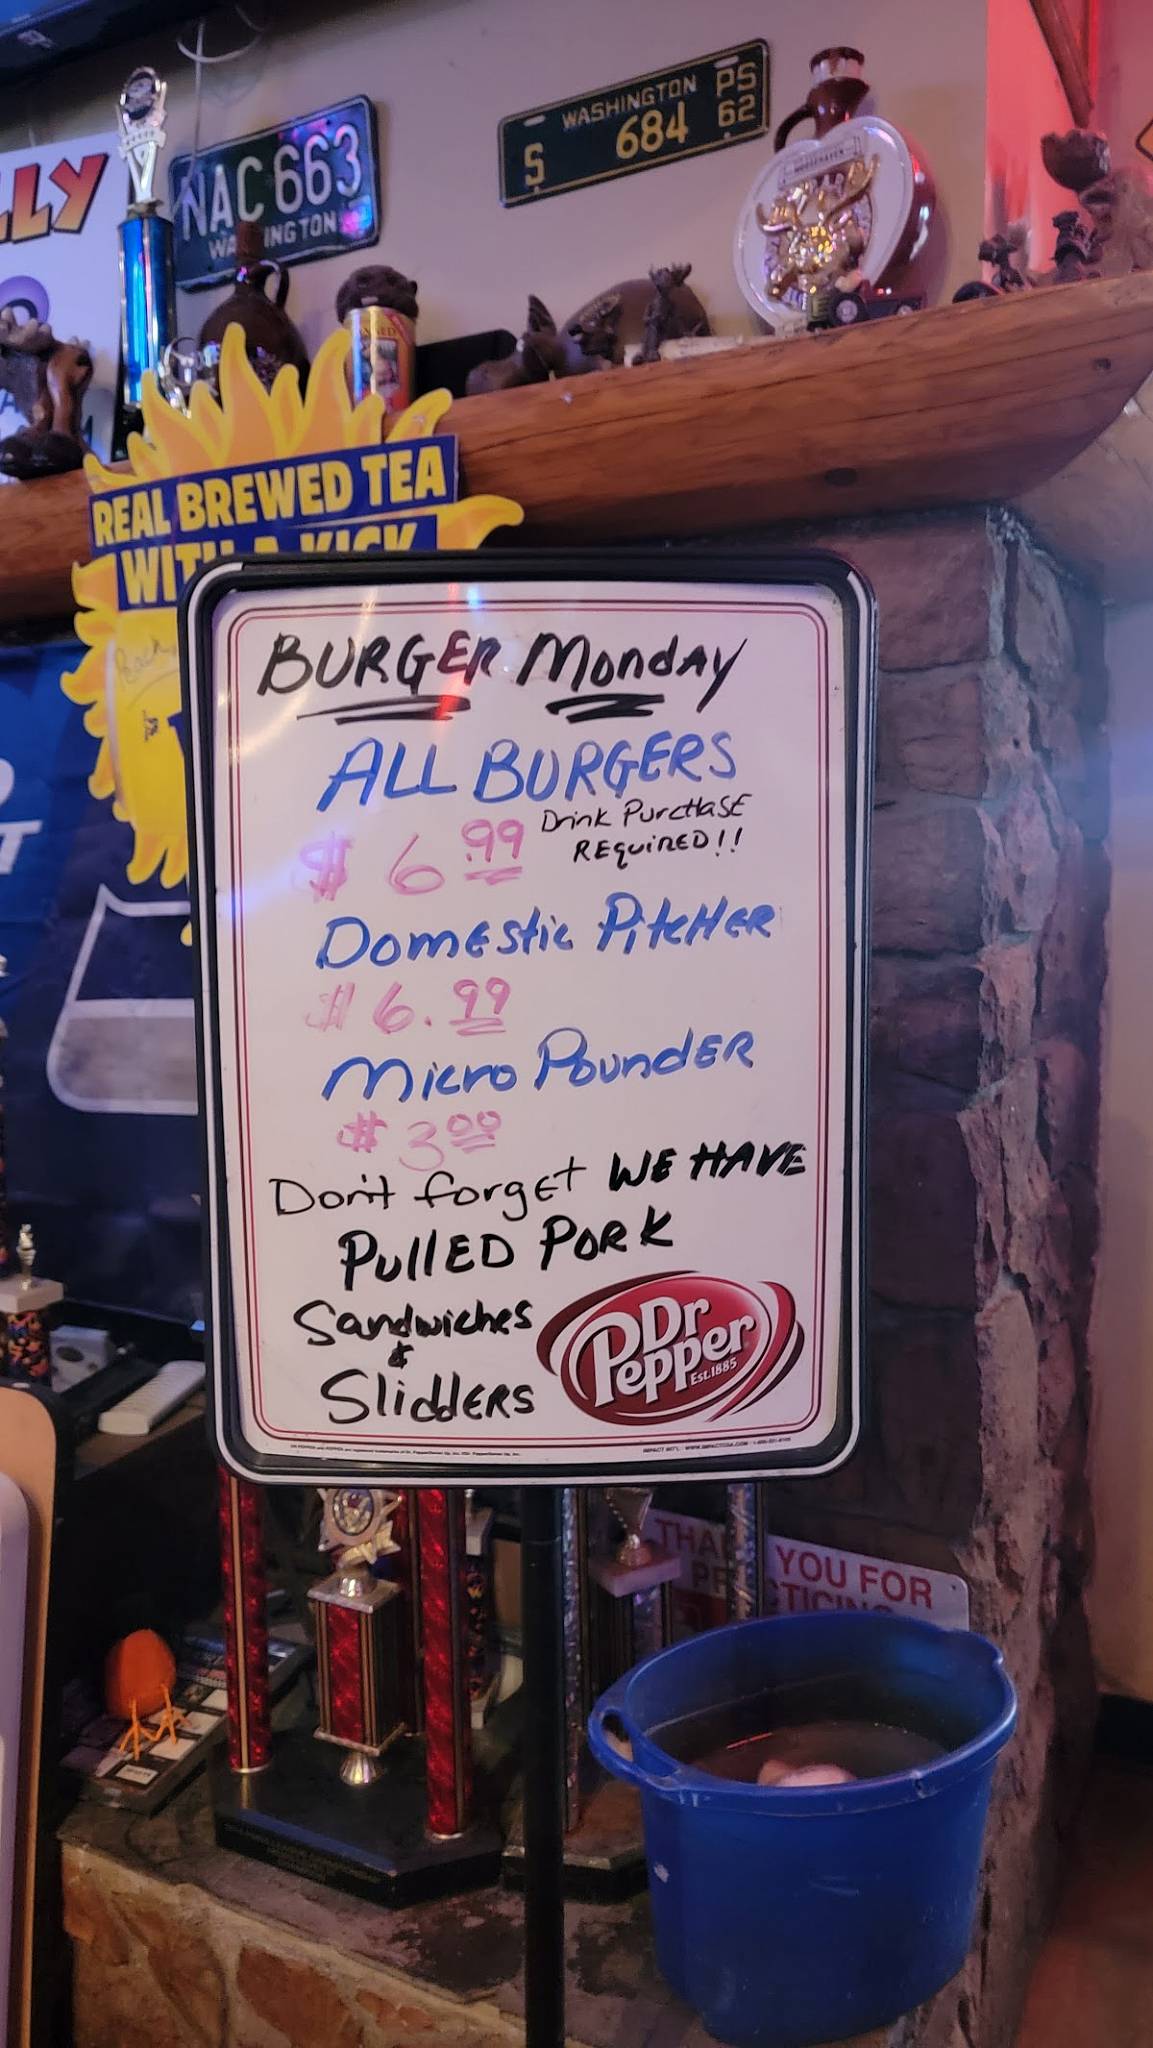 LLY
NAC 663
WASHINGTON
WASHINGTON
PS
62
S
684
REAL BREWED TEA
WITH A KICK
BURGER Monday
ALL BURGERS
$6.99 Drink Purchase
REQUIRED!!
Domestic Pitcher
$6.99
Micro Pounder
$3.00
Don't forget WE HAVE
PullED PORK
Sandwiches
&
SliddERS
Dr
Pepper
Est.1885
THANK YOU FOR